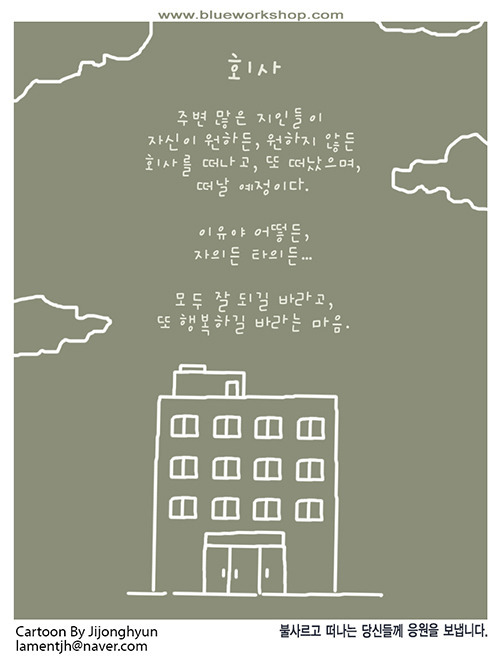 www.blueworkshop.com
회사
주변 많은 지인들이
자신이 원하든, 원하지 않든
회사를 떠나고, 또 떠났으며,
떠날 예정이다.
이유야 어떻든,
자의든 타의든...
모두 잘 되길 바라고,
또 행복하길 바라는 마음.
Cartoon By Jijonghyun
lamentjh@naver.com
불사르고 떠나는 당신들께 응원을 보냅니다.